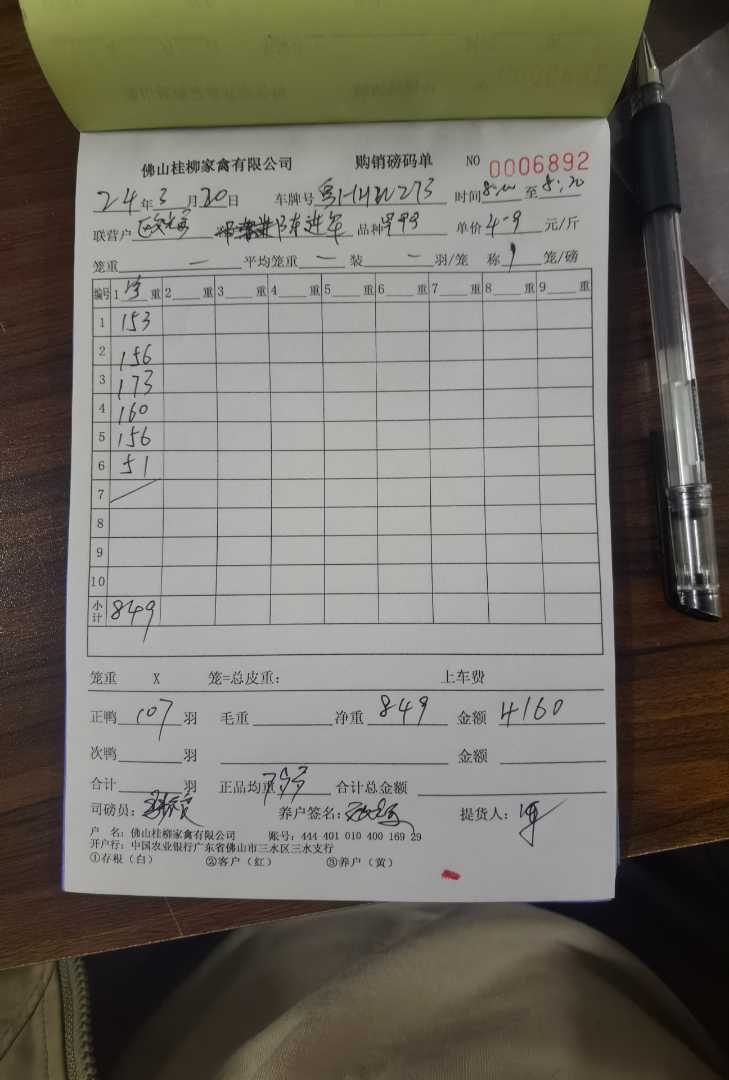 佛山桂柳家禽有限公司 购销磅码单 NO 0006892
24年3月20日 车牌号 粤 273 时间 8:00 至 8:20
联营户 品种 单价 4.9 元/斤
笼重 — 平均笼重 — 装 — 羽/笼 称 笼/磅
编号 1 净 重 2 重 3 重 4 重 5 重 6 重 7 重 8 重 9 重
1 153
2 156
3 173
4 160
5 156
6 51
7 /
8
9
10
小计 849
笼重 X 笼=总皮重: 上车费
正鸭 107 羽 毛重 净重 849 金额 4160
次鸭 羽 金额
合计 羽 正品均重 7.93 合计总金额
司磅员: 养户签名: 提货人:
户 名: 佛山桂柳家禽有限公司 账号: 444 401 010 400 169 29
开户行: 中国农业银行广东省佛山市三水区三水支行
①存根(白) ②客户(红) ③养户(黄)